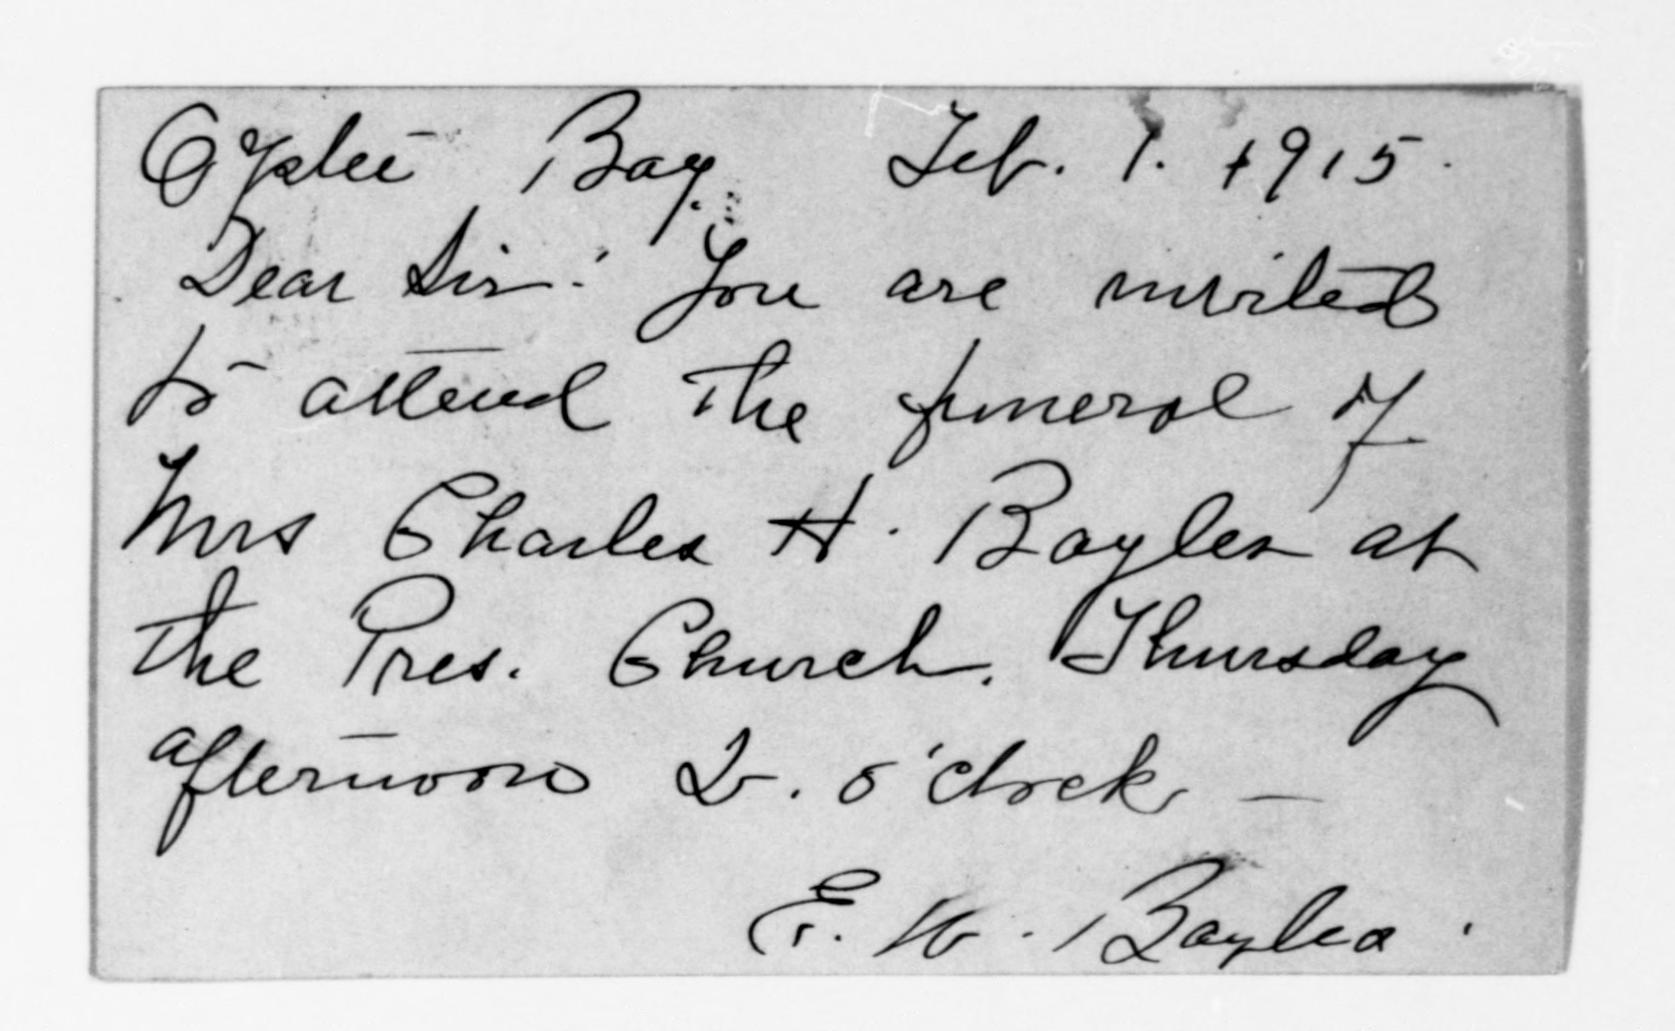 Oyster Bay. Feb. 1. 1915.
Dear Sir: You are invited
to attend the funeral of
Mrs Charles H. Bayles at
the Pres. Church. Thursday
afternoon 2. o'clock —
E. W. Bayles.